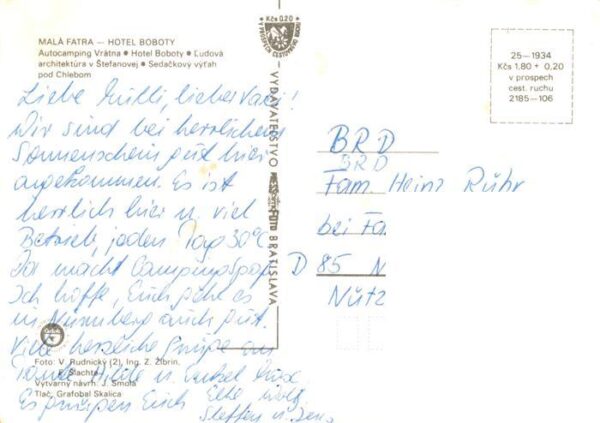 MALÁ FATRA — HOTEL BOBOTY
Autocamping Vrátna ● Hotel Boboty ● Ľudová
architektúra v Štefanovej ● Sedačkový výťah
pod Chlebom
Liebe Mutti, lieber Vati!
Wir sind bei herrlichem
Sonnenschein gut hier
angekommen. Es ist
herrlich hier u. viel
Betrieb, jeden Tag 30°C
Da macht Campingspaß
Ich hoffe, Euch geht es
in Nürnberg auch gut.
Viele herzliche Grüße an
Tante u. Onkel
Es grüßen Euch Elke
Steffen u. Jens
Foto: V. Rudnický (2), Ing. Z. Žibrín,
Šlachta
Výtvarný návrh: J. Smola
Tlač, Grafobal Skalica
Kčs 0,20
V PROSPECH CESTOVNÉHO RUCHU
— VYDAVATEĽSTVO
BRATISLAVA
25—1934
Kčs 1.80 + 0,20
v prospech
cest. ruchu
2185—106
BRD
BRD
Fam. Heinz Rühr
bei Fa.
D 85 N
Nütz